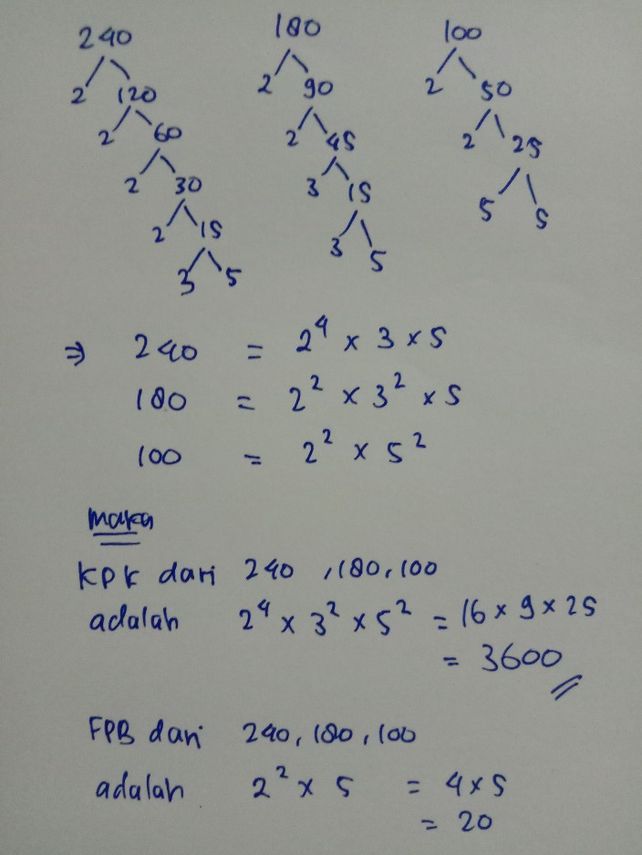 240 180 100
2 120 2 90 2 50
2 60 2 45 2 25
2 30 3 15 5 5
2 15 3 5
3 5
⇒ 240 = 2⁴ × 3 × 5
180 = 2² × 3² × 5
100 = 2² × 5²
Maka
KPK dari 240 , 180, 100
adalah 2⁴ × 3² × 5² = 16 × 9 × 25
= 3600
FPB dari 240, 180, 100
adalah 2² × 5 = 4 × 5
= 20